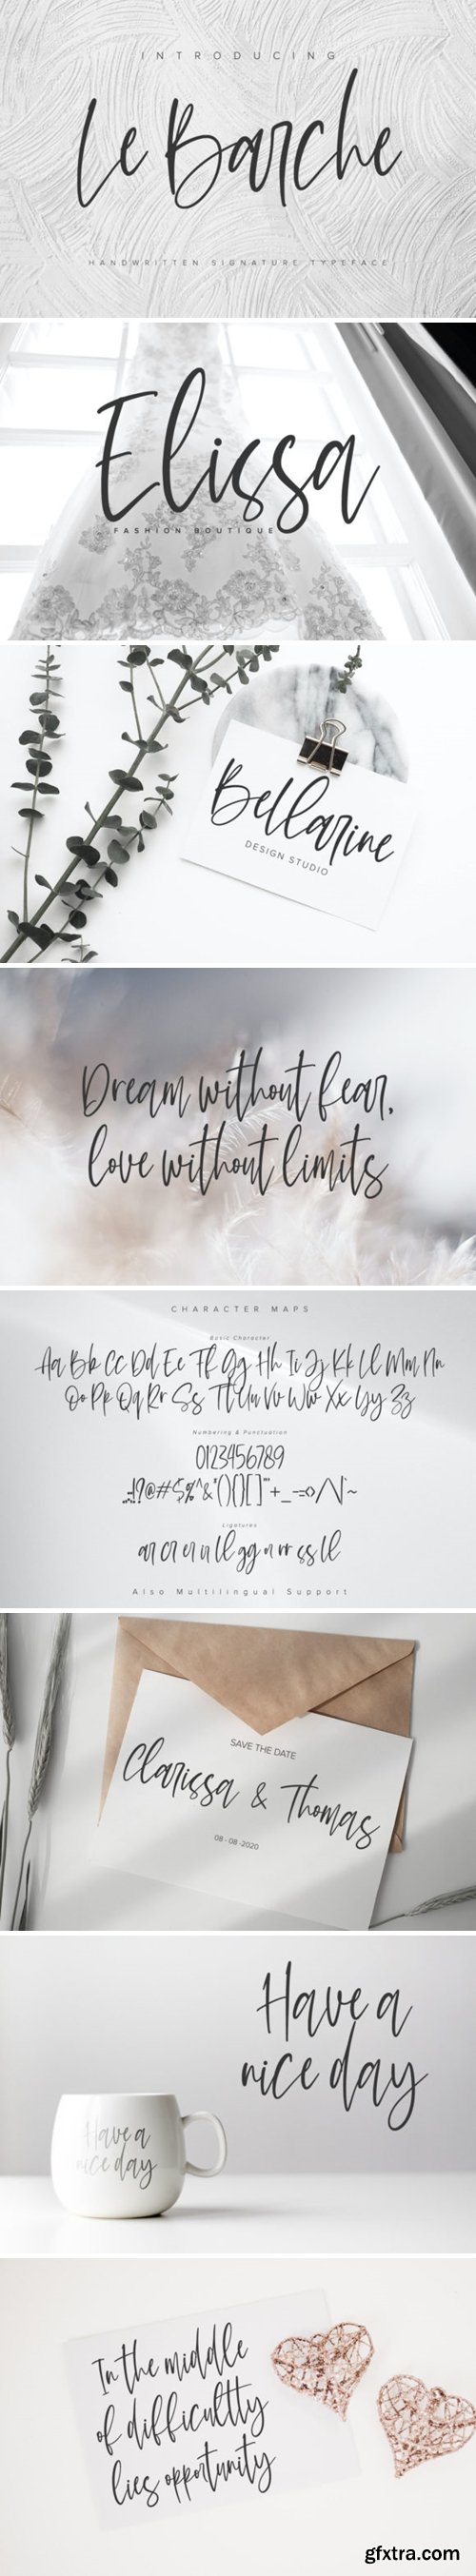 INTRODUCING
Le Barche
HANDWRITTEN SIGNATURE TYPEFACE
Elissa
FASHION BOUTIQUE
Bellarine
DESIGN STUDIO
Dream without fear,
love without limits
CHARACTER MAPS
Basic Character
Aa Bb Cc Dd Ee Ff Gg Hh Ii Jj Kk Ll Mm Nn
Oo Pp Qq Rr Ss Tt Uu Vv Ww Xx Yy Zz
Numbering & Punctuation
0123456789
Ligatures
ar cr er ir ll gg or rr ss ll
Also Multilingual Support
SAVE THE DATE
Clarissa & Thomas
08-08-2020
Have a
nice day
Have a
nice day
In the middle
of difficultty
lies opportunity
gfxtra.com